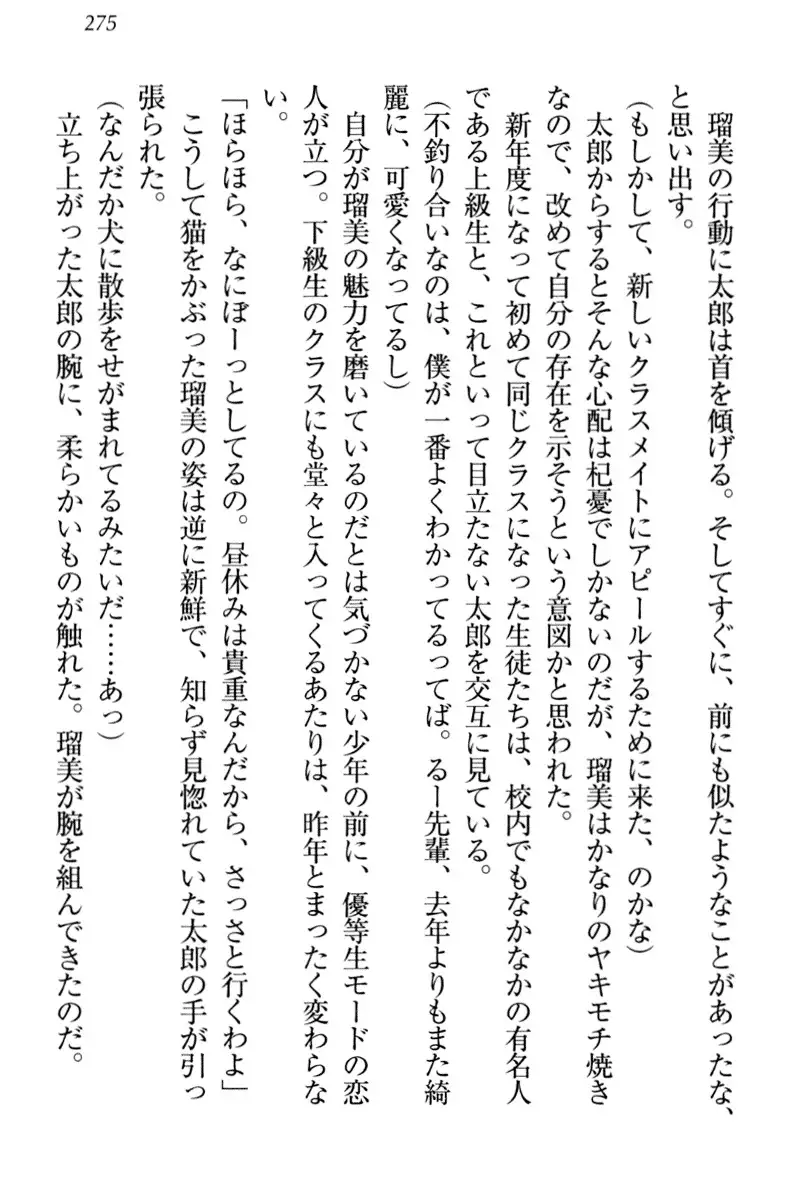 275
瑠美の行動に太郎は首を傾げる。そしてすぐに、前にも似たようなことがあったな、
と思い出す。
(もしかして、新しいクラスメイトにアピールするために来た、のかな)
太郎からするとそんな心配は杞憂でしかないのだが、瑠美はかなりのヤキモチ焼き
なので、改めて自分の存在を示そうという意図かと思われた。
新年度になって初めて同じクラスになった生徒たちは、校内でもなかなかの有名人
である上級生と、これといって目立たない太郎を交互に見ている。
(不釣り合いなのは、僕が一番よくわかってるってば。るー先輩、去年よりもまた綺
麗に、可愛くなってるし)
自分が瑠美の魅力を磨いているのだとは気づかない少年の前に、優等生モードの恋
人が立つ。下級生のクラスにも堂々と入ってくるあたりは、昨年とまったく変わらな
い。
「ほらほら、なにぼーっとしてるの。昼休みは貴重なんだから、さっさと行くわよ」
こうして猫をかぶった瑠美の姿は逆に新鮮で、知らず見惚れていた太郎の手が引っ
張られた。
(なんだか犬に散歩をせがまれてるみたいだ……あっ)
立ち上がった太郎の腕に、柔らかいものが触れた。瑠美が腕を組んできたのだ。